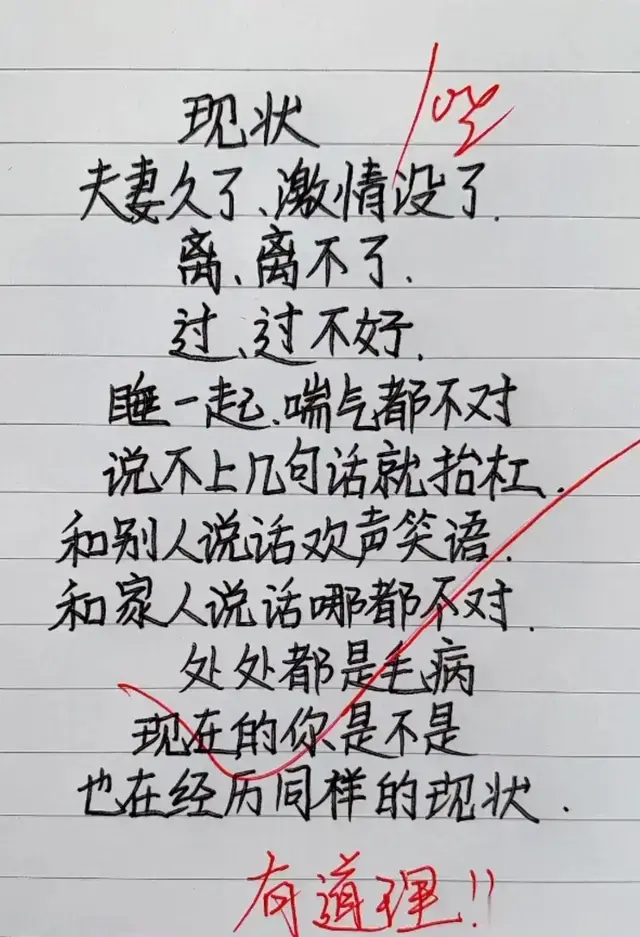 现状
夫妻久了、激情没了.
离、离不了.
过、过不好.
睡一起、喘气都不对
说不上几句话就抬杠.
和别人说话欢声笑语.
和家人说话哪都不对.
处处都是毛病
现在的你是不是
也在经历同样的现状.
有道理!!